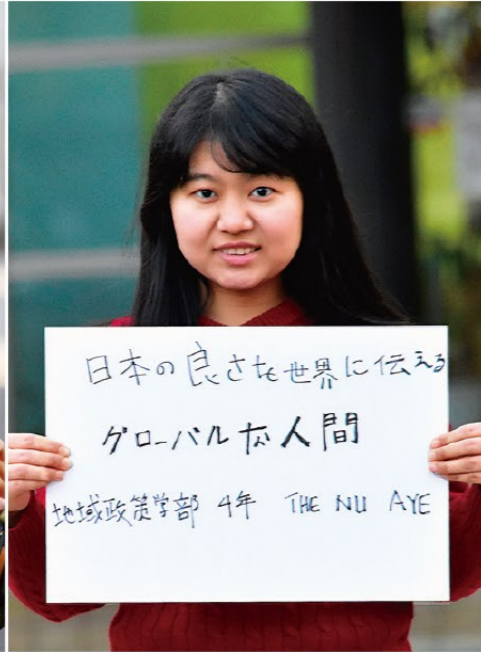 日本の良さを世界に伝える
グローバルな人間
地域政策学部 4年 THE NU AYE